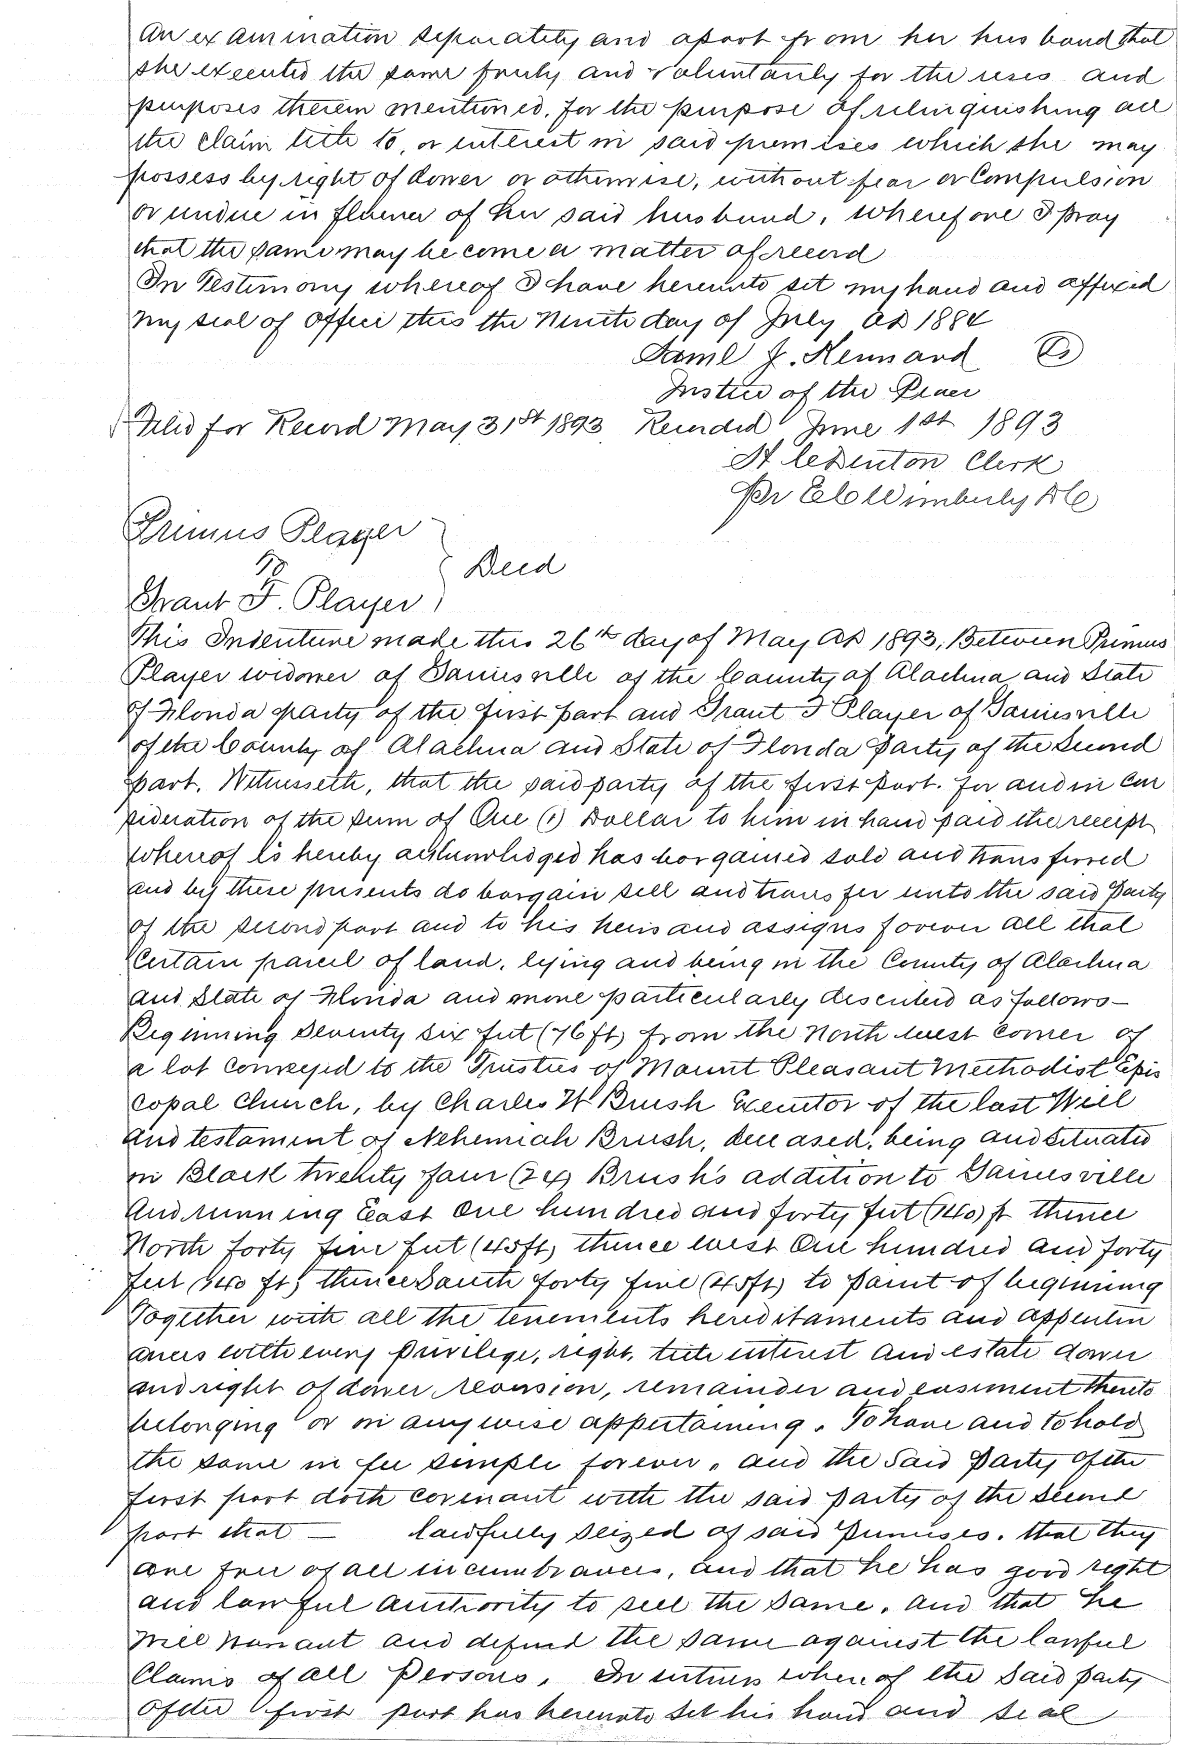 an examination separately and apart from her husband that
she executed the same freely and voluntarily for the uses and
purposes therein mentioned, for the purpose of relinquishing all
the claim title to, or interest in said premises which she may
possess by right of dower or otherwise, without fear or Compulsion
or undue influence of her said husband, wherefore I pray
that the same may become a matter of record
In Testimony whereof I have hereunto set my hand and affixed
my seal of office this the Ninth day of July AD 1884
Saml J. Kennard
Justice of the Peace
Filed for Record May 31st 1893 Recorded June 1st 1893
H C Denton Clerk
Pr E C Wimberly D C
Primus Player
To
Deed
Grant F. Player
This Indenture made this 26th day of May AD 1893, Between Primus
Player widower of Gainesville of the County of Alachua and State
of Florida party of the first part and Grant F Player of Gainesville
of the County of Alachua and State of Florida Party of the Second
part, Witnesseth, that the said party of the first part. for and in con
sideration of the sum of One (1) Dollar to him in hand paid the receipt
whereof is hereby acknowledged has bargained sold and transferred
and by these presents do bargain sell and transfer unto the said Party
of the second part and to his heirs and assigns forever all that
Certain parcel of land, lying and being in the County of Alachua
and State of Florida and more particularly described as follows-
Beginning Seventy six feet (76 ft) from the North west corner of
a lot conveyed to the Trustees of Mount Pleasant Methodist Epis
copal Church, by Charles W Brush Executor of the last Will
and testament of Nehemiah Brush, deceased, being and situated
in Block twenty four (24) Brush's addition to Gainesville
And running East One hundred and forty feet (140) ft thence
North forty five feet (45 ft) thence west One hundred and forty
feet (140 ft) thence South forty five (45 ft) to point of beginning
Together with all the tenements hereditaments and appurten
ances with every privilege, right, title interest and estate dower
and right of dower, reversion, remainder and easement thereto
belonging or in anywise appertaining. To have and to hold
the same in fee simple forever. and the Said Party of the
first part doth covenant with the said party of the second
part that — lawfully seized of said premises. that they
are free of all incumbrances, and that he has good right
and lawful authority to sell the same. and that he
will warrant and defend the same against the lawful
Claims of all persons. In witness whereof the Said party
of the first part has hereunto set his hand and seal